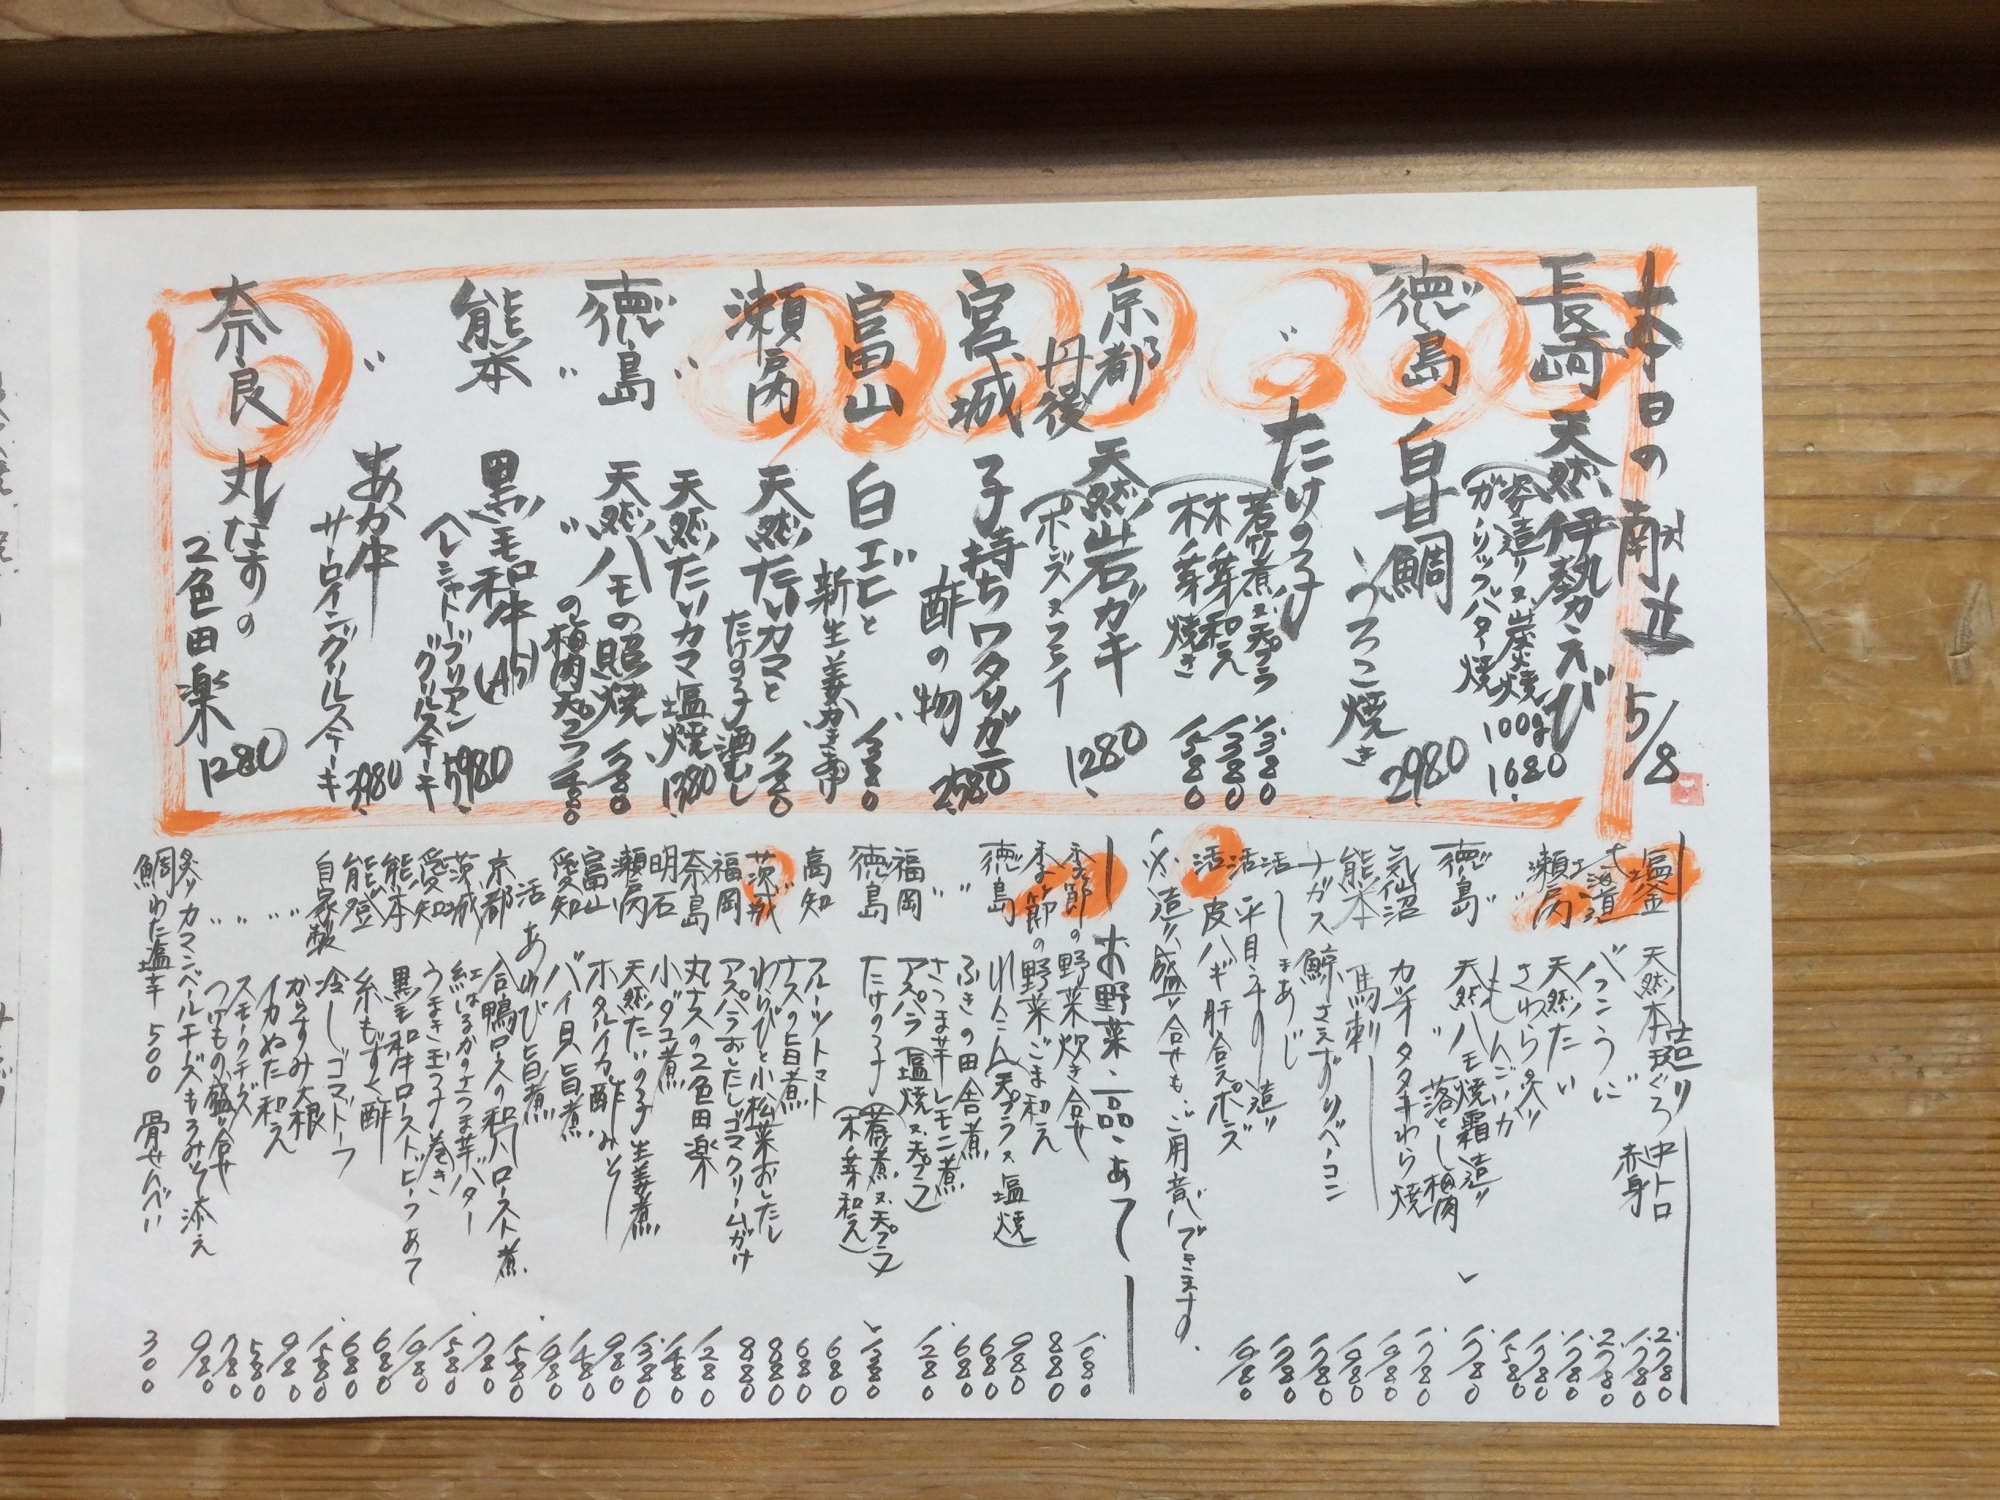 本日の献立 5/8
長崎 天然伊勢えび
姿造り又は炭焼 100g 1680
ガーリックバター焼
徳島 白甘鯛 2980
うろこ焼き
〃 たけのこ
若竹煮又天プラ 1380
木ノ芽和え 1380
木ノ芽焼き 1580
京都 丹後 天然岩ガキ 1280
(ポンズ又フライ
宮城 子持ちワタリガニ 2580
酢の物
富山 白エビと 1380
新生姜かき揚げ
瀬戸内 天然たいカマと 1780
たけの子酒むし
〃 天然たいカマ塩焼 1380
徳島 天然ハモの照焼 1780
〃 〃 の梅肉天プラ 1480
熊本 黒毛和牛(A5) 5980
ヘレシャトーブリアン グリルステーキ
〃 あか牛 3980
サーロイングリルステーキ
奈良 丸なすの 1280
2色田楽
造り
塩釜 天然本まぐろ 中トロ 2780
赤身 1780
北海道 バフンうに 2780
瀬戸内 天然たい 1780
さわら炙り 1780
〃 もんごいか 1580
徳島 天然ハモ焼霜造り 1780
〃 落とし梅肉
気仙沼 カツオタタキわら焼 1780
熊本 馬刺し 1980
ナガス鯨さえずりベーコン 1980
活 しまあじ 1780
活 平目うすり造り 1780
活 皮ハギ肝合えポンズ 1980
少造り、盛り合せも、ご用意できます。
お野菜・一品・あて
季節の野菜炊き合せ 1080
季節の野菜ごま和え 880
徳島 れんこん(天プラ又塩焼) 980
〃 ふきの田舎煮 680
さつま芋レモン煮 680
福岡 アスパラ(塩焼又天プラ) 1280
徳島 たけの子(若竹煮又天プラ 1380
木ノ芽和え)
高知 フルーツトマト 680
ナスの旨煮 680
茨城 わらびと小松菜おしたし 880
福岡 アスパラおしたしゴマクリームがけ 880
奈良 丸ナスの2色田楽 1280
明石 小ダコ煮 1480
瀬戸内 天然たいの子生姜煮 1380
富山 ホタルイカ酢みそ 980
愛知 バイ貝旨煮 1480
活 あわび旨煮 1980
京都 合鴨ロースの和風ロースト煮 1580
茨城 紅はるかのさつま芋バター 780
愛知 うまき玉子巻き 1580
熊本 黒毛和牛ローストビーフあて 1980
能登 糸もずく酢 680
自家製 冷しゴマドーフ 680
〃 からすみ大根 1580
〃 イカぬた和え 980
〃 スモークチーズ 580
つけもの盛り合せ 780
炙りカマンベールチーズもろみそ添え 980
鯛わた塩辛 500 骨せんべい 300